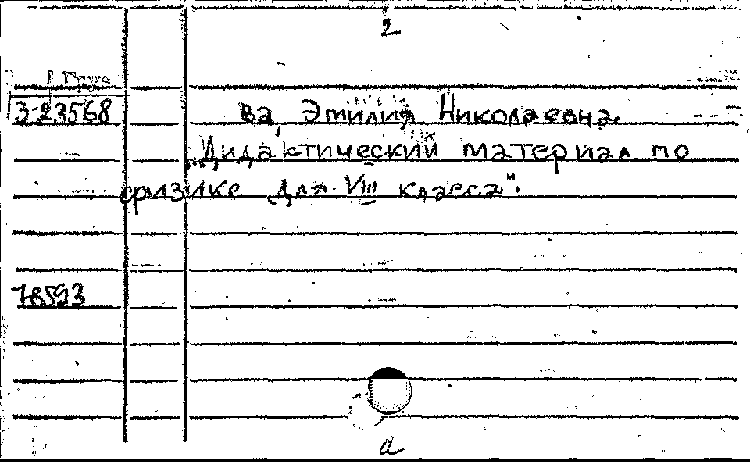 2
3-23568 ва, Эмилия Николаевна.
„Дидактический материал по
физике для VIII класса".
78593
а